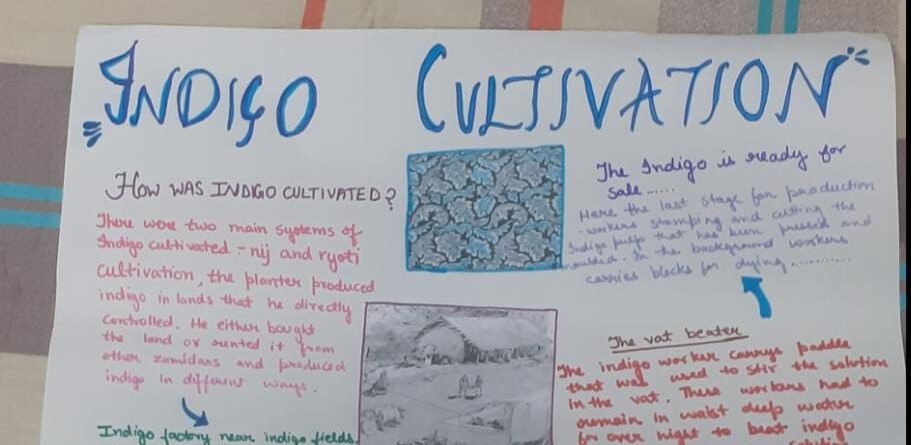 INDIGO CULTIVATION
HOW WAS INDIGO CULTIVATED?
There were two main systems of
Indigo cultivated - nij and ryoti
cultivation, the planter produced
indigo in lands that he directly
controlled. He either bought
the land or rented it from
other zamidars and produced
indigo in different ways.
Indigo factory near indigo fields.
The Indigo is ready for
sale ......
Here the last stage for production
workers stamping and cutting the
Indigo pulp that has been pressed and
moulded. In the background workers
carries blocks for dying ............
The vat beater
The indigo worker carrys paddle
that was used to stir the solution
in the vat. These workers had to
remain in waist deep water
for over night to beat indigo